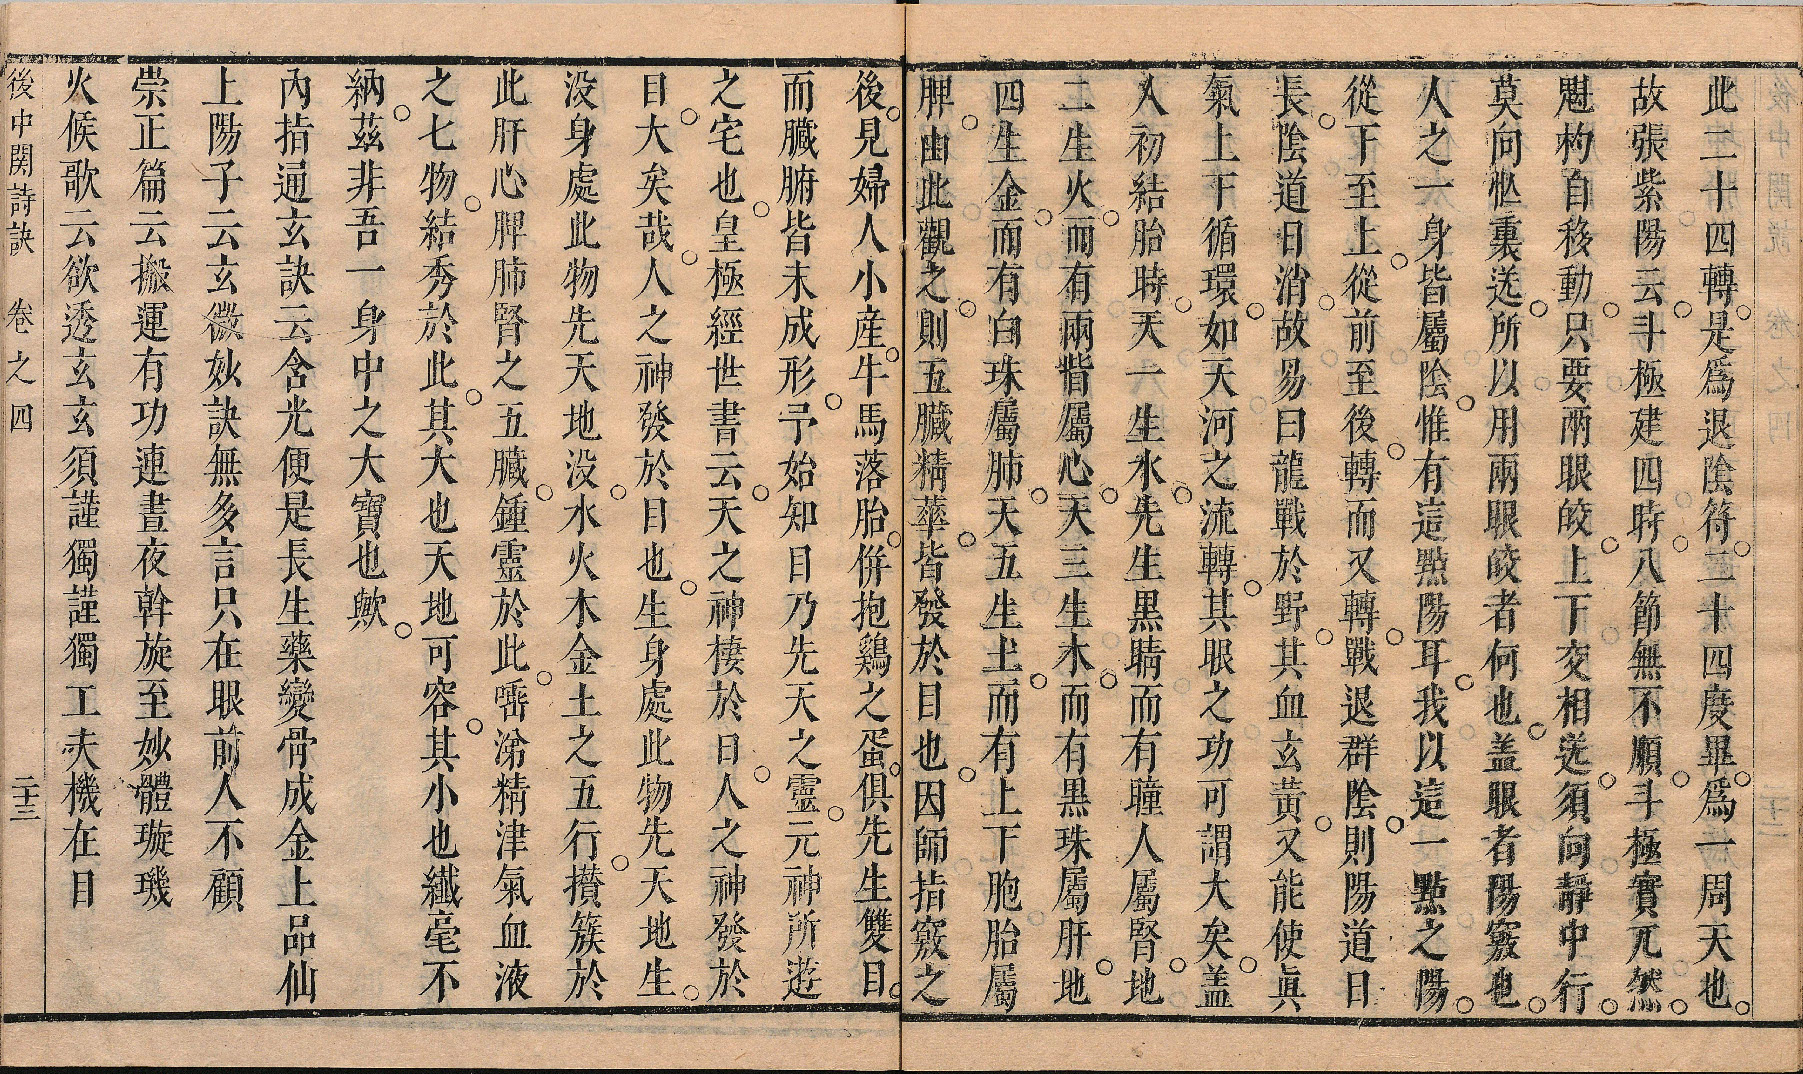 此二十四轉是爲退陰符二十四度畢爲一周天也
故張紫陽云斗極建四時八節無不順斗極實兀然
魁杓自移動只要兩眼皎上下交相送須向靜中行
莫向忙裏送所以用兩眼皎者何也盖眼者陽竅也
人之一身皆屬陰惟有這點陽耳我以這一點之陽
從下至上從前至後轉而又轉戰退群陰則陽道日
長陰道日消故易曰龍戰於野其血玄黃又能使眞
氣上下循環如天河之流轉其眼之功可謂大矣盖
人初結胎時天一生水先生黑睛而有瞳人屬腎地
二生火而有兩眥屬心天三生木而有黑珠屬肝地
四生金而有白珠屬肺天五生土而有上下胞胎屬
脾由此觀之則五臟精華皆發於目也因師指竅之
後見婦人小產牛馬落胎併抱鷄之蛋俱先生雙目
而臟腑皆末成形予始知目乃先天之靈元神所遊
之宅也皇極經世書云天之神棲於日人之神發於
目大矣哉人之神發於目也生身處此物先天地生
没身處此物先天地没水火木金土之五行攢簇於
此肝心脾肺腎之五臟鍾靈於此唾涕精津氣血液
之七物結秀於此其大也天地可容其小也纖毫不
納茲非吾一身中之大寶也歟
內指通玄訣云含光便是長生藥變骨成金上品仙
上陽子云玄微妙訣無多言只在眼前人不顧
崇正篇云搬運有功連晝夜斡旋至妙體璇璣
火候歌云欲透玄玄須謹獨謹獨工夫機在目
後中関詩訣　卷之四　二十三